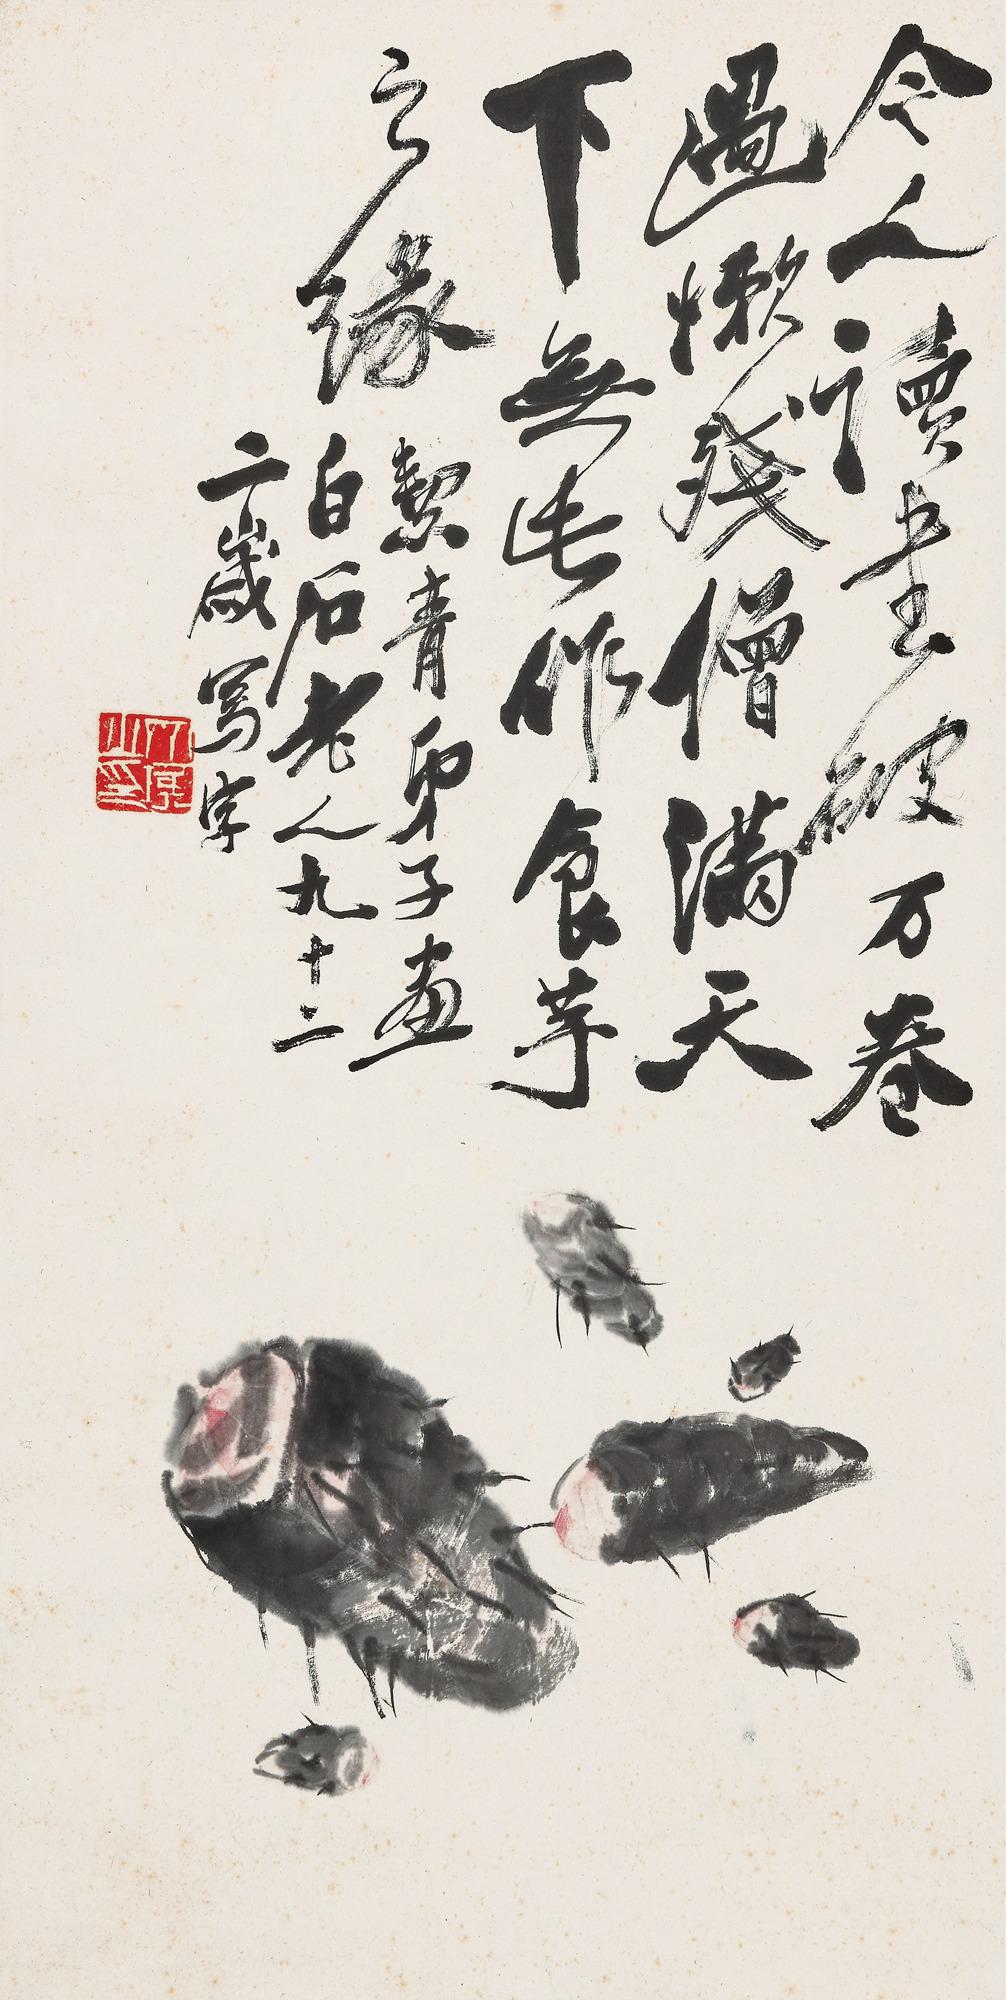 今人讀書破万卷
過懶殘僧滿天
下無此作食芋
之緣
絜青弟子画
白石老人九十二
二歲寫字